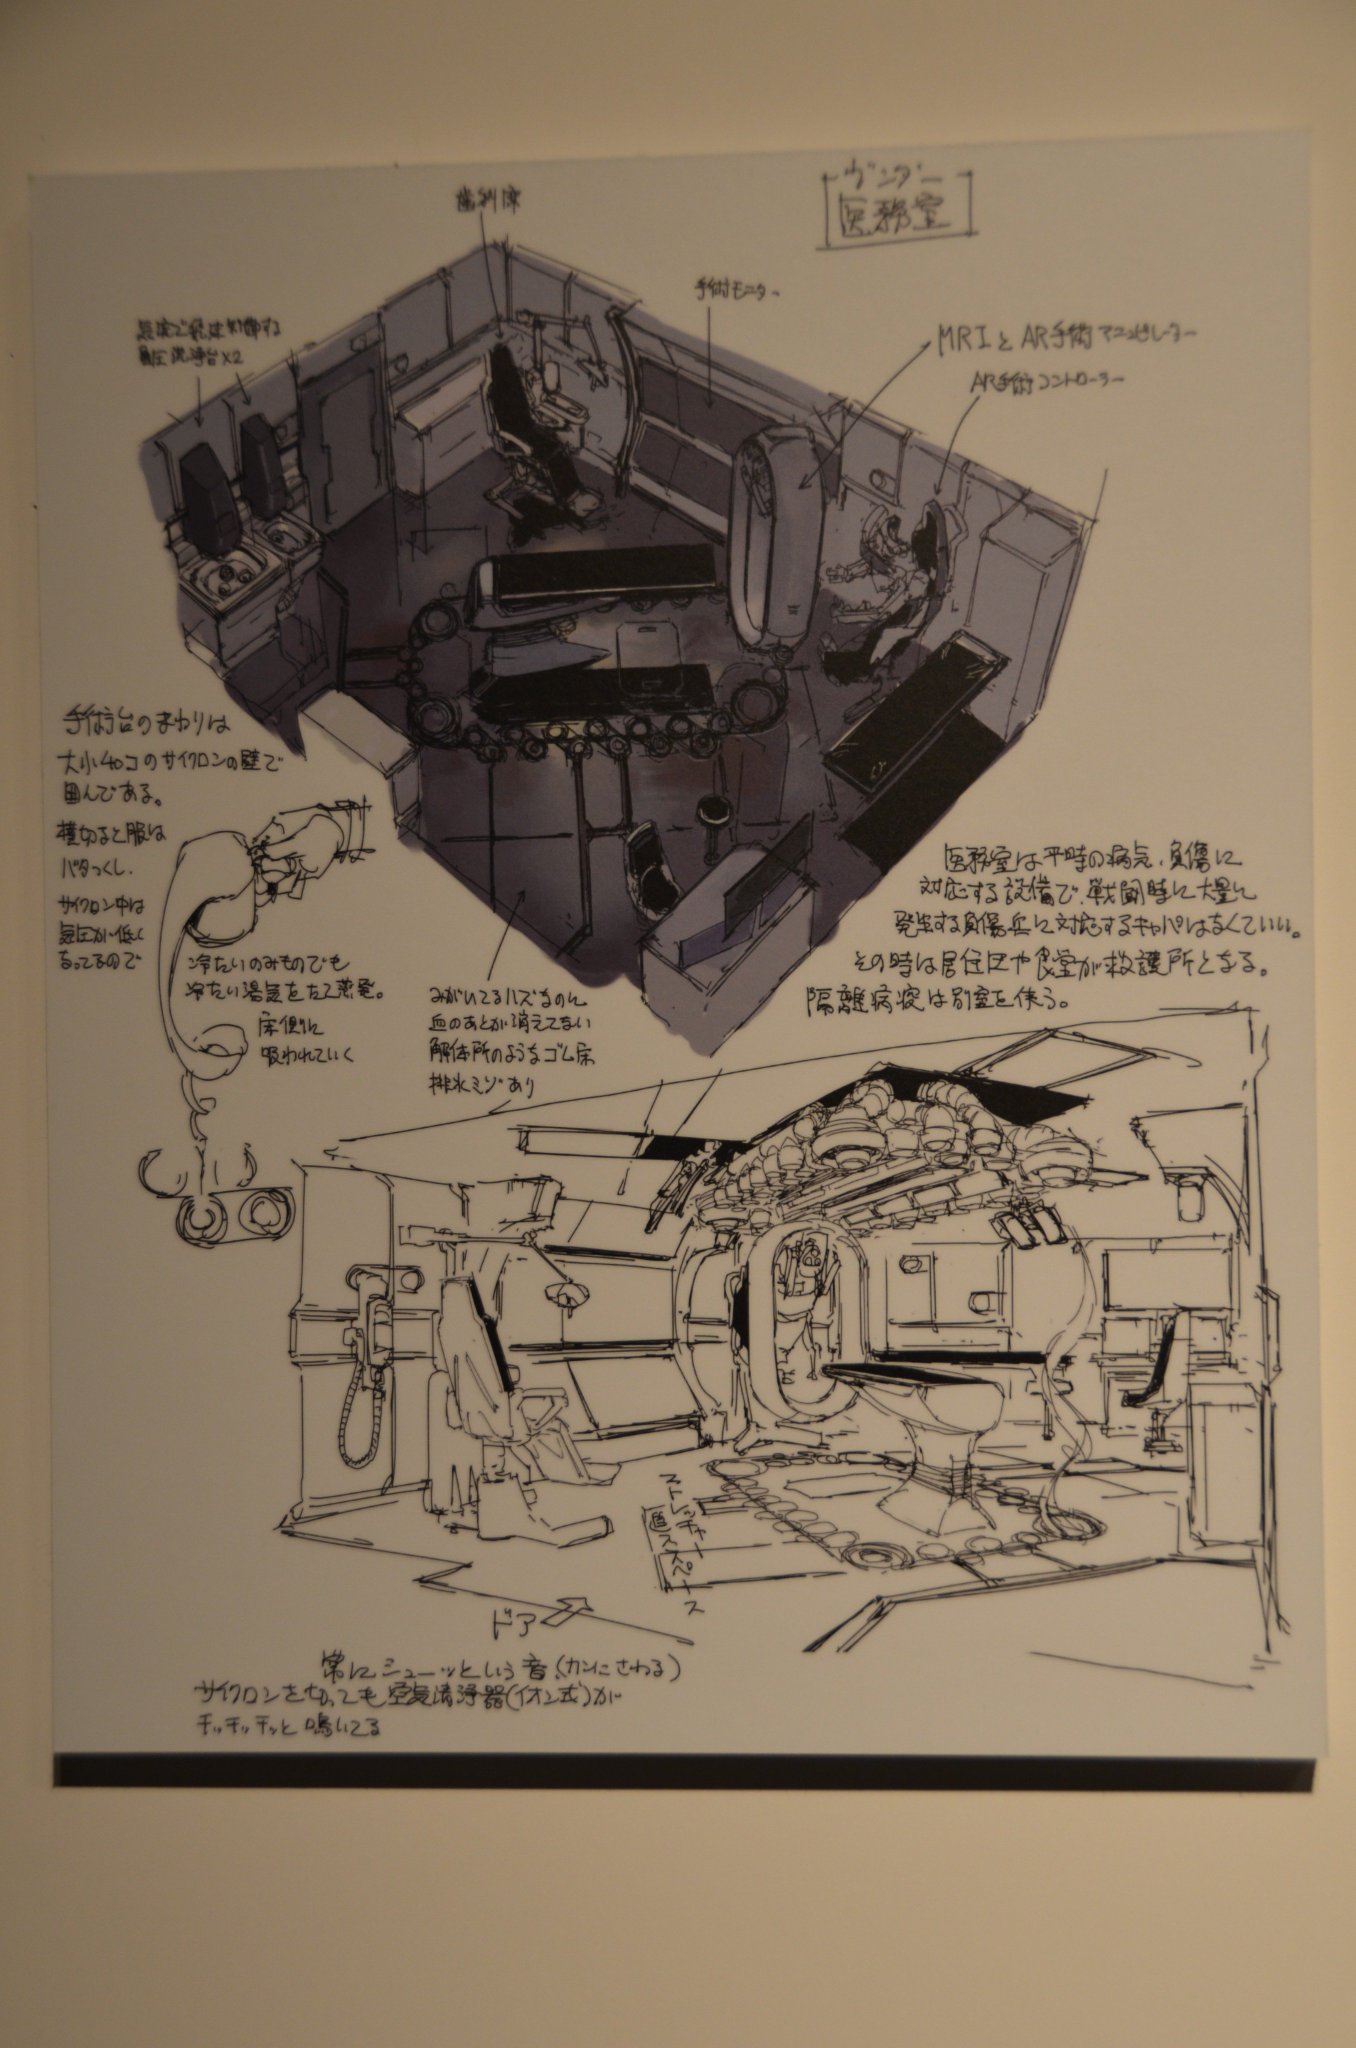 ヴンダー
医務室
歯科席
手術モニター
MRIとAR手術マニピュレーター
AR手術コントローラー
洗浄台×2
手術台のまわりは
大小40コのサイクロンの壁で
囲んである。
横切ると服は
バタつくし、
サイクロン中は
気圧が低く
なってるので
冷たいのみものでも
冷たい湯気をたて蒸発。
床側に
吸われていく
みがいてるハズなのに
血のあとが消えてない
解体所のようなゴム床
排水ミゾあり
医務室は平時の病気、負傷に
対応する設備で、戦闘時に大量に
発生する負傷兵に対応するキャパはなくていい。
その時は居住区や食堂が救護所となる。
隔離病室は別室を使う。
ストレッチャー
置くスペース
ドア
常にシューッという音、(カンにさわる)
サイクロンを切っても空気清浄器(イオン式)が
チッチッチッと鳴いてる